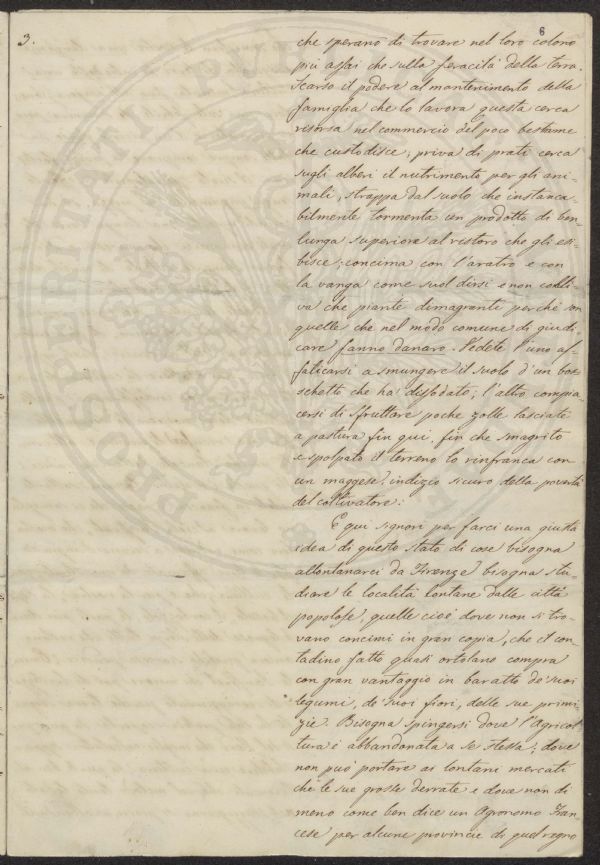 3.
6
che sperano di trovare nel loro colono
più assai che sulla feracità della terra.
Scarso il podere al mantenimento della
famiglia che lo lavora questa cerca
risorsa nel commercio del poco bestiame
che custodisce; priva di prati cerca
sugli alberi il nutrimento per gli ani-
mali, strappa dal suolo che instanca-
bilmente tormenta un prodotto di ben
lunga superiore al ristoro che gli esi-
bisce; concima con l'aratro e con
la vanga come suol dirsi e non colti-
va che piante dimagranti perchè son
quelle che nel modo comune di giudi-
care fanno danaro. Vedete l'uno af-
faticarsi a smungere il suolo d'un bos-
chetto che ha dissodato; l'altro compia-
cersi di sfruttare poche zolle lasciate
a pastura fin qui, fin che smagrito
e spolpato il terreno lo rinfranca con
un maggese, indizio sicuro della povertà
del coltivatore.
E qui signori per farci una giusta
idea di questo stato di cose bisogna
allontanarci da Firenze, bisogna stu-
diare le località lontane dalle città
popolose, quelle cioè dove non si tro-
vano concimi in gran copia, che il con-
tadino fatto quasi ortolano compra
con gran vantaggio in baratto de' suoi
legumi, de' suoi fiori, delle sue primi-
zie. Bisogna spingersi dove l'Agricol-
tura è abbandonata a se stessa; dove
non può portare ai lontani mercati
che le sue grosse derrate e dove non di
meno come ben dice un Agronomo Fran-
cese per alcune provincie di quel regno
PROSPERITATI PUBLICAE